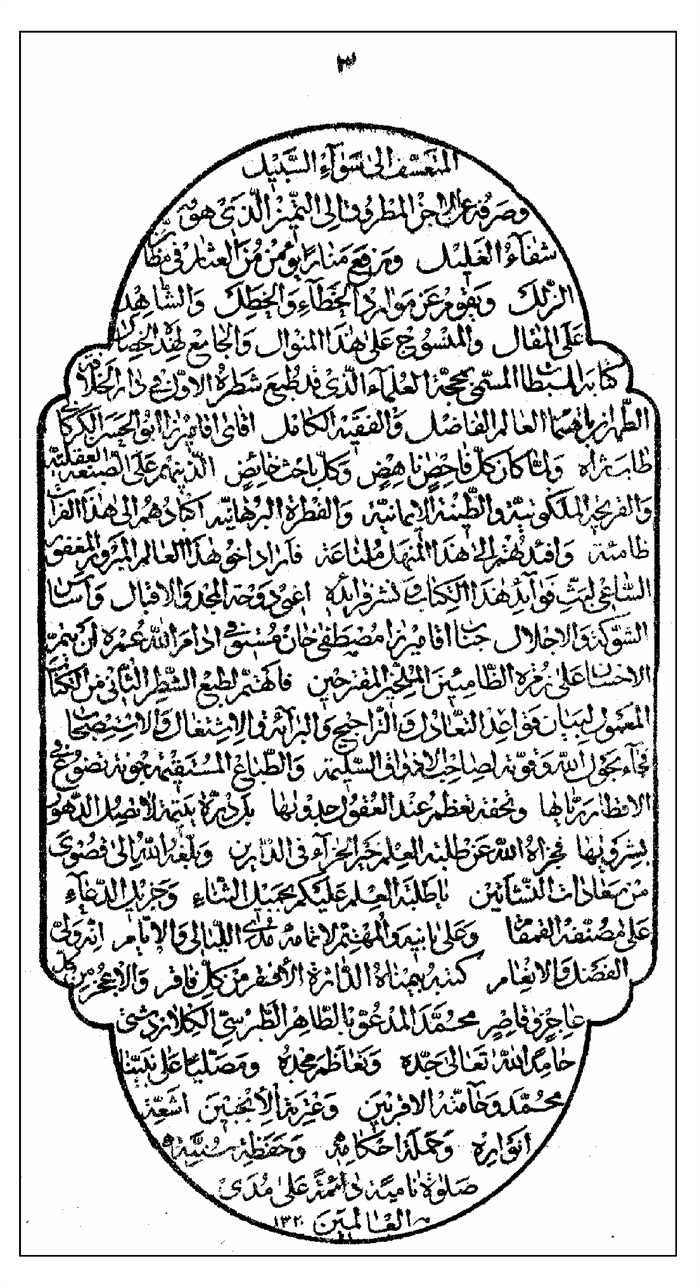 ٣
المتعسّف الى سوآء السّبيل
وصرفه عن الراجز المظروف الى التميز الّذى هو
شفاء الغليل ويرفع منارا يؤمن من العثار فى مظا
الزلل ويقوم عن موارد الخطاء والخطل والشاهد
على المقال والمنسوج على هذا المنوال والجامع لهذه الخصا
كتابه المستطاب المسمّى بمحجّة العلماء الّذى قد طبع شطره الاوّل فى دار الخلافة
الطهران باهتمام العالم الفاضل والفقيه الكامل اقاى اقاميرزا ابو الحسن الكركا
طاب ثراه ولمّا كان كلّ فاحص ناهض وكلّ باحث خائض الّذين هم على الصبغة العقليّة
والقريحة الملكوتيّة والطّينة الايمانيّة والفطرة البرهانيّة اكبادهم الى هذا الفرات
ظامئة وافئدتهم الى هذا المنهل ملتاعة فاراد اخو هذا العالم المبرور المغفور
السّاعى لبثّ فوايد هذا الكتاب ونشر فرائده اعنى دوحة المجد والاقبال وآسان
الشوكة والاجلال جناب اقاميرزا مصطفى خان مستوفى ادام الله عمره ان يتمّ
الاحسان على زمرة الظامئين الملحّين المقترحين فاهتمّ لطبع الشطر الثّانى من الكتاب
المعمول لبيان قواعد التّعادل والتّراجيح والبرآئة والاشتغال والاستصحاب
فجآء بحول الله وقوّته لصاحب الاذواق السّليمة والطّباع المستقيمة جونة تضوع فى
الاقطار ريّاها وتحفة تعظم عند العقول جدواها بل درّة يتيمة لا تصل الدّهور
بشرواها فجزاه الله عن طلبة العلم خير الجزآء فى الدّارين وبلّغه الله الى قصوى
من سعادات النّشأتين يا طلبة العلم عليكم بجميل الثّناء وجزيل الدّعآء
على مصنّفه القمقام وعلى بانيه والمهتمّ لاتمامه مدى اللّيالى والايّام انّه ولىّ
الفضل والانعام كتبه بيمناه الداثرة الاحقر من كلّ فاقر والاعجز من كلّ
عاجز وقاصر محمّد المدعوّ بالطّاهر الطّبرسىّ الكلاردشتىّ
حامداً لله تعالى جدّه وتعاظم مجده ومصلّيا على نبيّنا
محمّد وحامّته الاقربين وعترته الانجبين اشعّة
انواره وحملة احكامه وحفظة سننه
صلوة نامية دائمة على مدى
العالمين ١٣٢٠